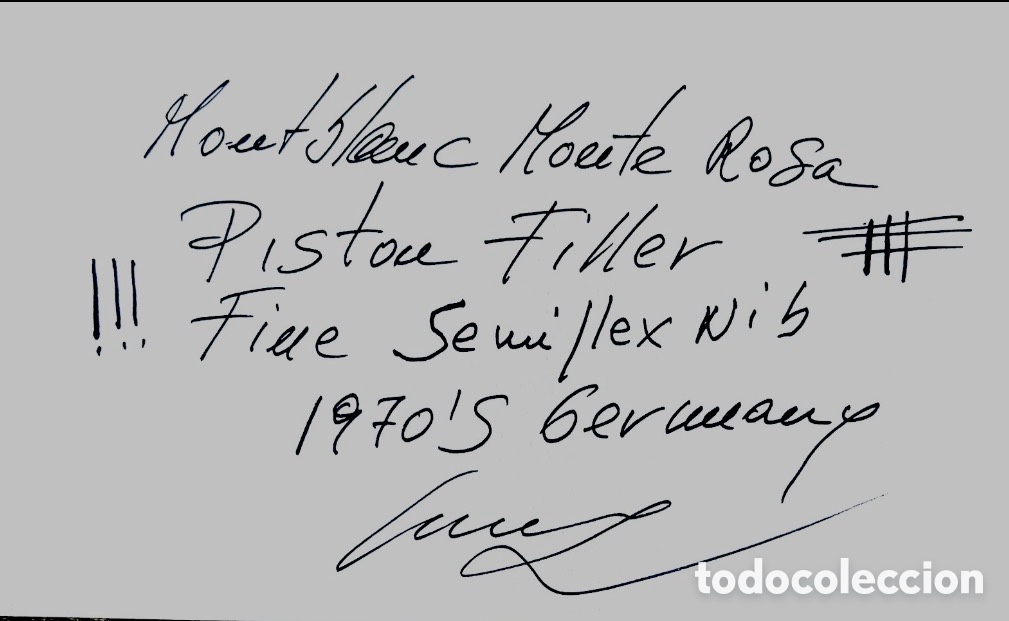 Montblanc Monte Rosa
Piston Filler
!!! Fine Semiflex Nib
1970'S Germany
todocoleccion